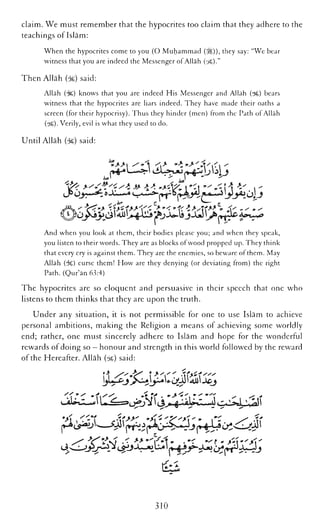 claim. We must remember that the hypocrites too claim that they adhere to the
teachings of Islām:
When the hypocrites come to you (O Muḥammad (ﷺ)), they say: “We bear
witness that you are indeed the Messenger of Allāh (ﷻ).”
Then Allāh (ﷻ) said:
Allāh (ﷻ) knows that you are indeed His Messenger and Allāh (ﷻ) bears
witness that the hypocrites are liars indeed. They have made their oaths a
screen (for their hypocrisy). Thus they hinder (men) from the Path of Allāh
(ﷻ). Verily, evil is what they used to do.
Until Allāh (ﷻ) said:
وَإِذَا رَأَيْتَهُمْ تُعْجِبُكَ أَجْسَامُهُمْ
وَإِن يَقُولُوا۟ تَسْمَعْ لِقَوْلِهِمْ كَأَنَّهُمْ خُشُبٌ مُّسَنَّدَةٌ يَحْسَبُونَ كُلَّ
صَيْحَةٍ عَلَيْهِمْ هُمُ ٱلْعَدُوُّ فَٱحْذَرْهُمْ قَٰتَلَهُمُ ٱللَّهُ أَنَّىٰ يُؤْفَكُونَ ﴿٤﴾
And when you look at them, their bodies please you; and when they speak,
you listen to their words. They are as blocks of wood propped up. They think
that every cry is against them. They are the enemies, so beware of them. May
Allāh (ﷻ) curse them! How are they denying (or deviating from) the right
Path. (Qur’ān 63:4)
The hypocrites are so eloquent and persuasive in their speech that one who
listens to them thinks that they are upon the truth.
Under any situation, it is not permissible for one to use Islām to achieve
personal ambitions, making the Religion a means of achieving some worldly
end; rather, one must sincerely adhere to Islām and hope for the wonderful
rewards of doing so – honour and strength in this world followed by the reward
of the Hereafter. Allāh (ﷻ) said:
وَعَدَ ٱللَّهُ ٱلَّذِينَ ءَامَنُوا۟ مِنكُمْ وَعَمِلُوا۟
ٱلصَّٰلِحَٰتِ لَيَسْتَخْلِفَنَّهُمْ فِى ٱلْأَرْضِ كَمَا ٱسْتَخْلَفَ
ٱلَّذِينَ مِن قَبْلِهِمْ وَلَيُمَكِّنَنَّ لَهُمْ دِينَهُمُ ٱلَّذِى ٱرْتَضَىٰ لَهُمْ
وَلَيُبَدِّلَنَّهُم مِّنۢ بَعْدِ خَوْفِهِمْ أَمْنًا يَعْبُدُونَنِى لَا يُشْرِكُونَ بِى
شَيْـًٔا
310